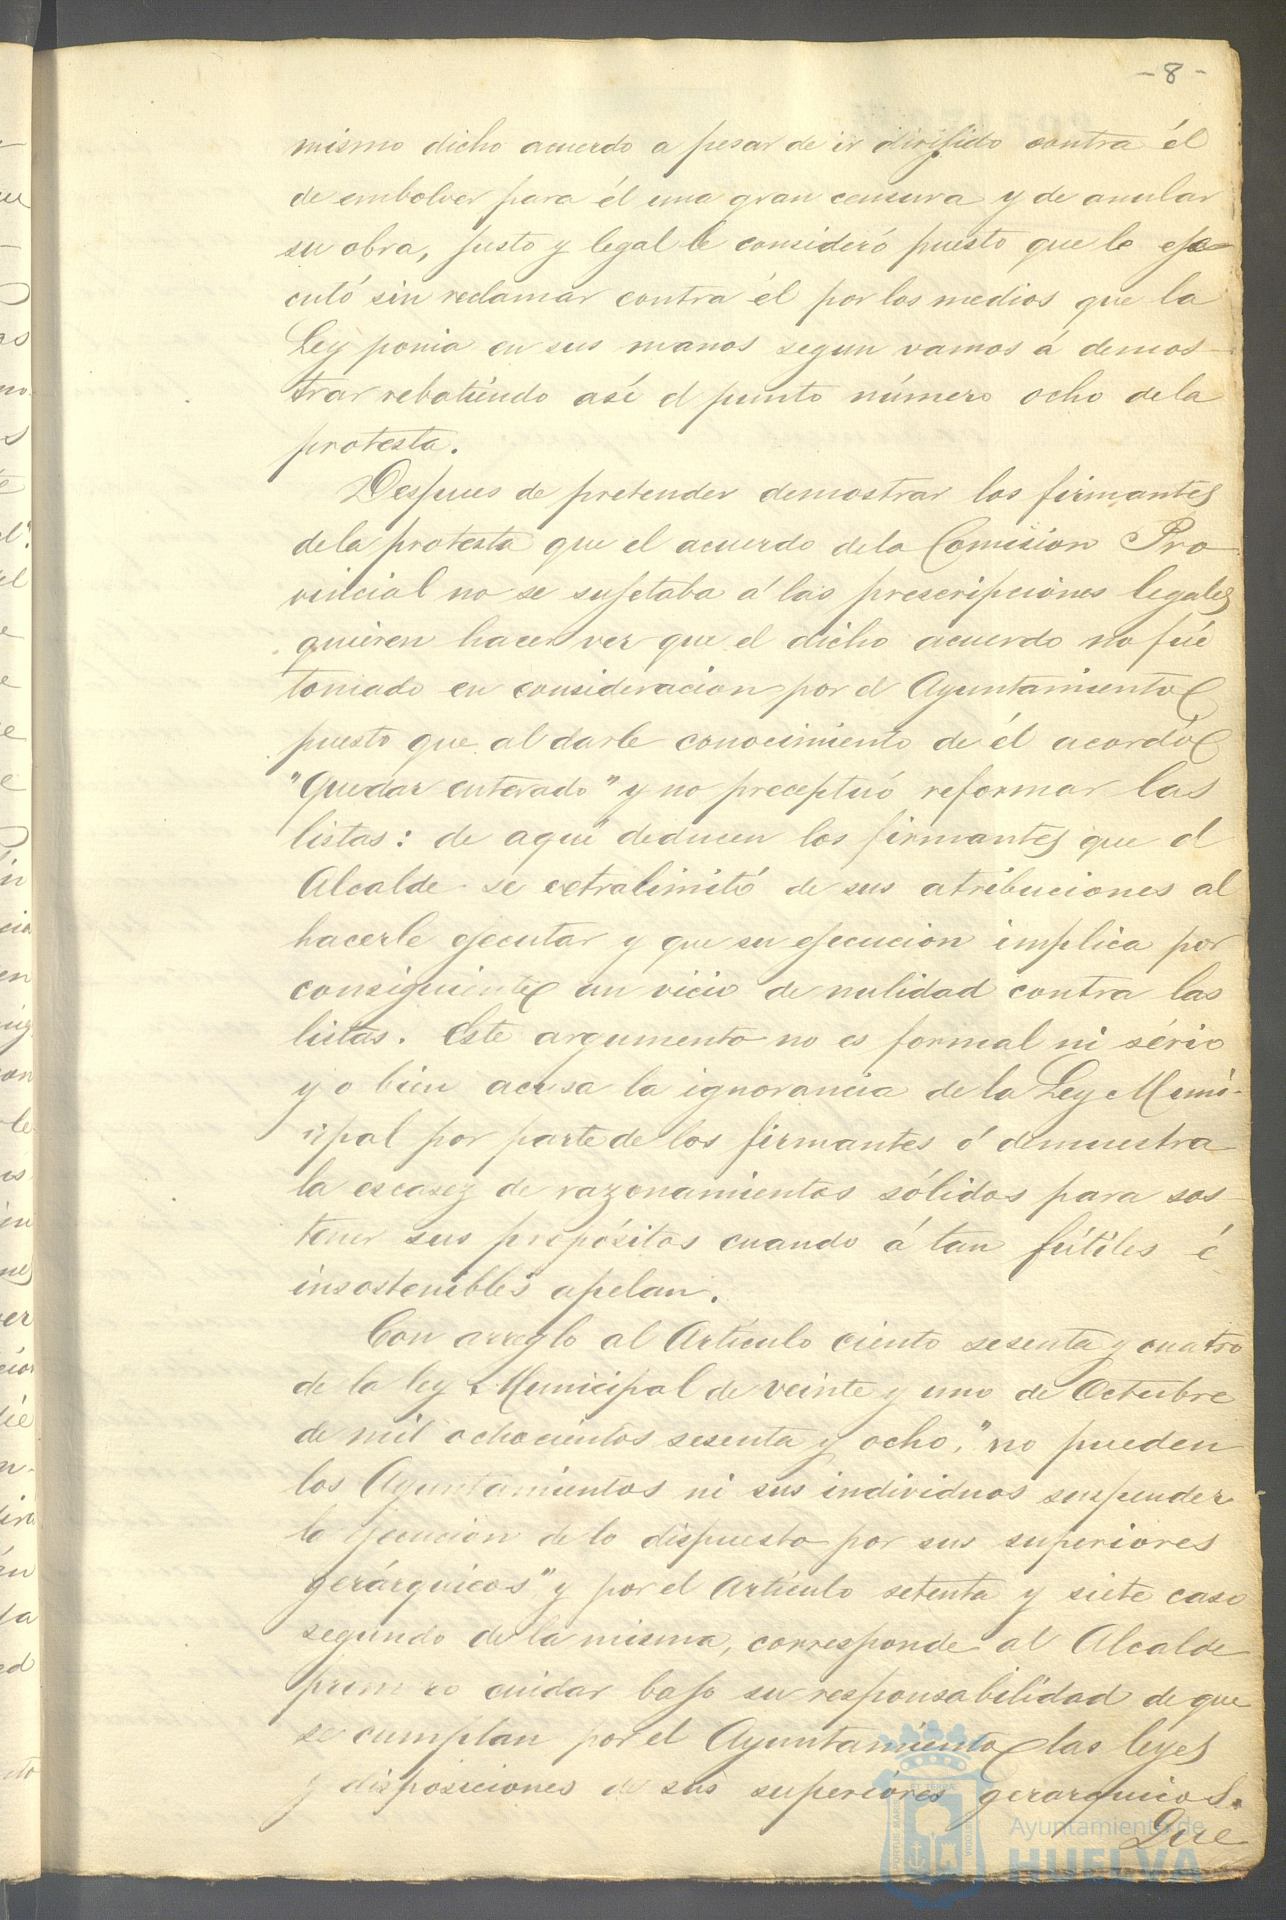 - 8 -
mismo dicho acuerdo a pesar de ir dirijido contra él
de embolver para él una gran censura y de anular
su obra, justo y legal le consideró puesto que le eje-
cutó sin reclamar contra él por los medios que la
Ley ponia en sus manos segun vamos á demos-
trar rebatiendo asi el punto número ocho de la
protesta.
Despues de pretender demostrar los firmantes
de la protesta que el acuerdo de la Comision Pro-
vincial no se sujetaba á las prescripciones legales
quieren hacer ver que el dicho acuerdo no fué
tomado en consideracion por el Ayuntamiento
puesto que al darle conocimiento de él acordó
"Quedar enterado" y no preceptuó reformar las
listas: de aqui deducen los firmantes que el
Alcalde se extralimitó de sus atribuciones al
hacerle ejecutar y que su ejecucion implica por
consiguiente un vicio de nulidad contra las
listas. Este argumento no es formal ni sério
y o bien acusa la ignorancia de la Ley Muni-
cipal por parte de los firmantes ó demuestra
la escasez de razonamientos sólidos para sos-
tener sus propósitos cuando á tan fútiles é
insostenibles apelan.
Con arreglo al Artículo ciento sesenta y cuatro
de la ley Municipal de veinte y uno de Octubre
de mil ochocientos sesenta y ocho, "no pueden
los Ayuntamientos ni sus individuos suspender
la ejecucion de lo dispuesto por sus superiores
gerárquicos" y por el Artículo setenta y siete caso
segundo de la misma, corresponde al Alcalde
primero cuidar bajo su responsabilidad de que
se cumplan por el Ayuntamiento las leyes
y disposiciones de sus superiores gerarquicos.
Que
Ayuntamiento de
HUELVA